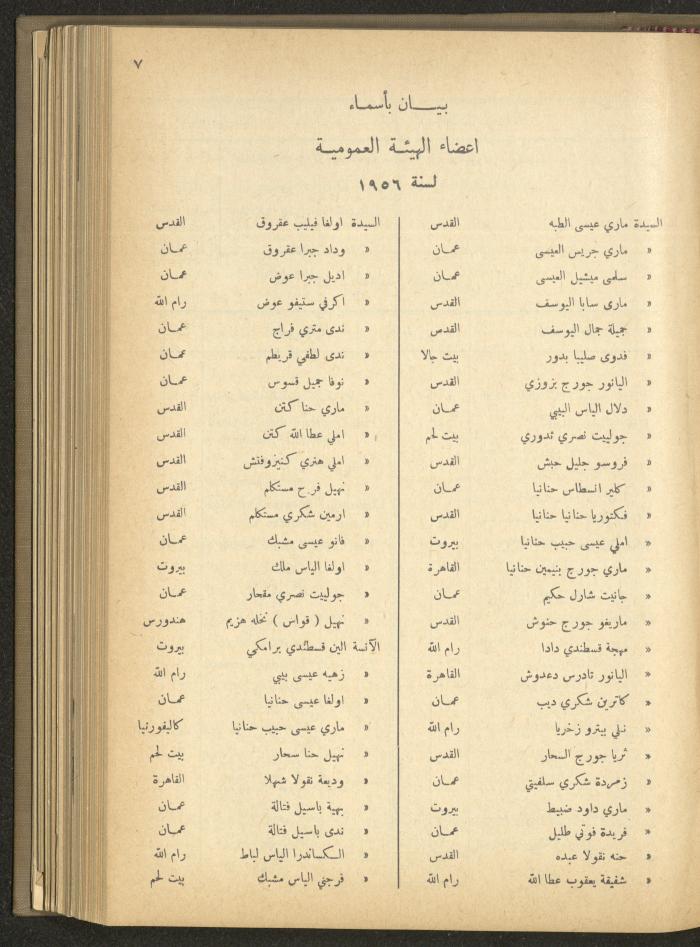 ٧
بيـــان بأسماء
اعضاء الهيئة العمومية
لسنة ١٩٥٦
السيدة ماري عيسى الطبه القدس
« ماري جريس العيسى عمان
« سلمى ميشيل العيسى عمان
« ماري سابا اليوسف القدس
« جميلة جمال اليوسف القدس
« فدوى صليبا بدور بيت جالا
« اليانور جورج بزوزي القدس
« دلال الياس البيبي عمان
« جولييت نصري تدوري بيت لحم
« فروسو جليل حبش القدس
« كلير انسطاس حنانيا عمان
« فكتوريا حنانيا حنانيا القدس
« املي عيسى حبيب حنانيا بيروت
« ماري جورج بنيمين حنانيا القاهرة
« جانيت شارل حكيم عمان
« ماريغو جورج حنوش القدس
« مهجة قسطندي دادا رام الله
« اليانور تادرس دعدوش القاهرة
« كاترين شكري ديب عمان
« نللي بيترو زخريا رام الله
« ثريا جورج السحار القدس
« زمردة شكري سلفيتي عمان
« ماري داود ضبيط بيروت
« فريدة فوتي طليل عمان
« حنه نقولا عبده القدس
« شفيقة يعقوب عطا الله رام الله
السيدة اولغا فيليب عقروق القدس
« وداد جبرا عقروق عمان
« اديل جبرا عوض عمان
« اكرفي ستيفو عوض رام الله
« ندى متري فراج عمان
« ندى لطفي قريطم عمان
« نوفا جميل قسوس عمان
« ماري حنا كتن القدس
« املي عطا الله كتن القدس
« املي هنري كنيزوفتش القدس
« نهيل فرح مستكلم القدس
« ارمين شكري مستكلم القدس
« فانو عيسى مشبك عمان
« اولغا الياس ملك بيروت
« جولييت نصري مقحار عمان
« نهيل ( قواس ) نخله هزيم هندورس
الآنسة الين قسطندي برامكي بيروت
« زهيه عيسى بيبي رام الله
« اولغا عيسى حنانيا عمان
« ماري عيسى حبيب حنانيا كاليفورنيا
« نهيل حنا سحار بيت لحم
« وديعة نقولا شهلا القاهرة
« بهية باسيل فتالة عمان
« ندى باسيل فتالة عمان
« الكساندرا الياس لباط رام الله
« فرجني الياس مشبك بيت لحم